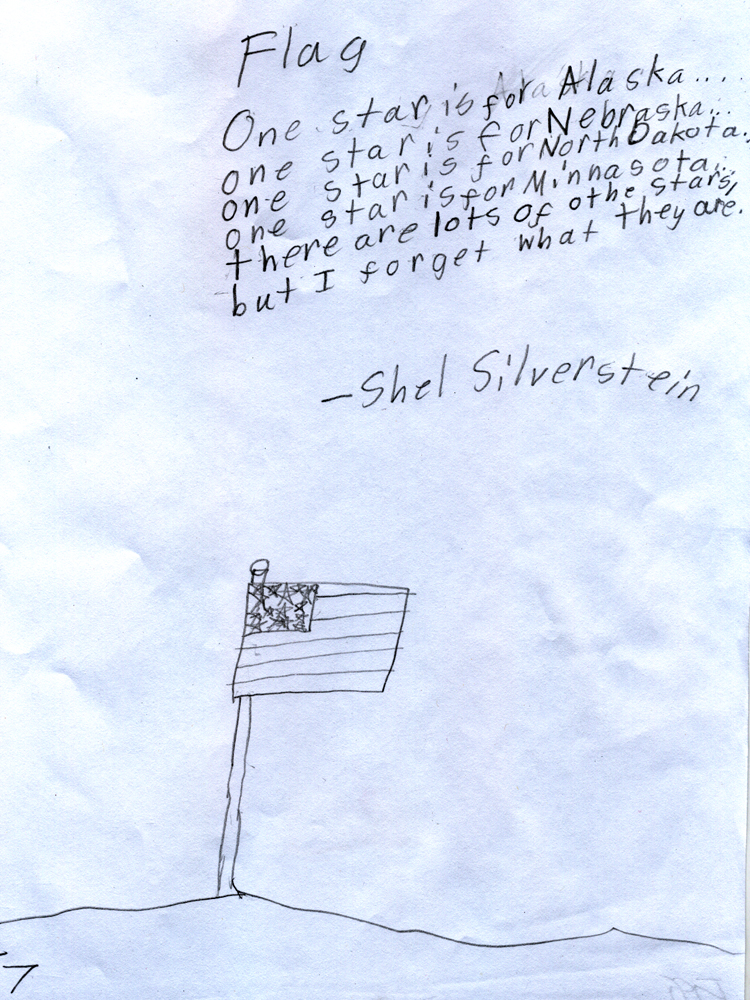 Flag
One star is for Alaska....
one star is for Nebraska...
one star is for North Dakota.
one star is for Minnasota...
there are lots of othe stars,
but I forget what they are.
—Shel Silverstein
7